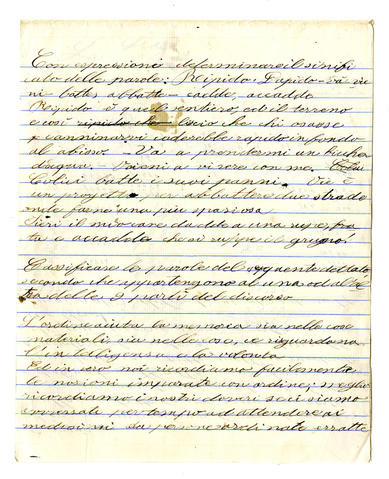 Con espressioni determinare il signifi
cato delle parole: Ripido, Rapido - va vie
ni batte, abbatte - cadde, accadde
Ripido è quel sentiero, ed il terreno
e così liscio che chi osasse
camminarvi caderebbe rapido in fondo
al abisso. Va a prendermi un
d'acqua. Vieni a vivere con me.
Colui batte i suoi panni. Vi è
un progetto per abbattere due strade
onde farne una più spaziosa
Ieri il mio cane cadde da una
ta e accadde che si ruppe il grugno!
Classificare le parole del seguente dettato
secondo che appartengono al una od al al
tra delle 9 parti del discorso
L'ordine aiuta la memoria sia nelle cose
materiali, sia nelle cose, che riguardano
l'intelligenza e la volontà
Ed in vero noi ricordiamo facilmente
le nozioni imparate con ordine; meglio
ricordiamo i nostri doveri se ci siamo
avvezzati per tempo ad attendere ai
medesimi da persone ordinate esatte